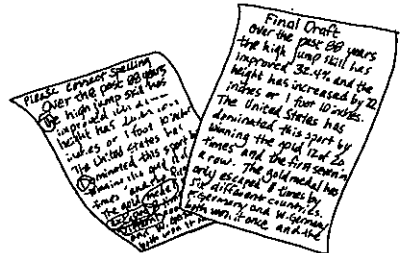 Please correct spelling
Over the past 88 years
the high jump skill has
improved
height has
inches or 1 foot 10 inches
The United States has
dominated this sport by
the gold
times and the first
The gold medal

Final Draft
Over the past 88 years
the high jump skill has
improved 32.4% and the
height has increased by 22
inches or 1 foot 10 inches.
The United States has
dominated this sport by
winning the gold 12 of 20
times and the first seven in
a row. The gold medal has
only escaped 8 times by
six different countries.
Germany and W. Germany
both won it once and the